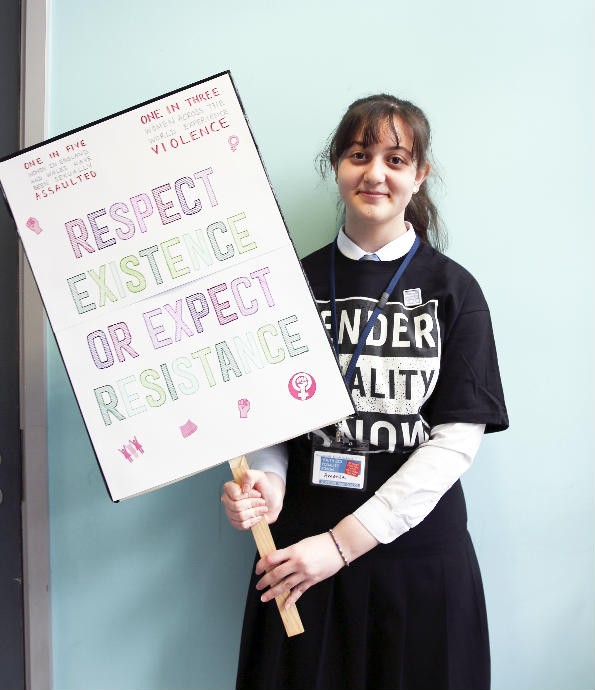 ONE IN FIVE
WOMEN IN ENGLAND
AND WALES HAVE
BEEN SEXUALLY
ASSAULTED
ONE IN THREE
WOMEN ACROSS THE
WORLD EXPERIENCE
VIOLENCE
RESPECT
EXISTENCE
OR EXPECT
RESISTANCE
ENDER
ALITY
NOW